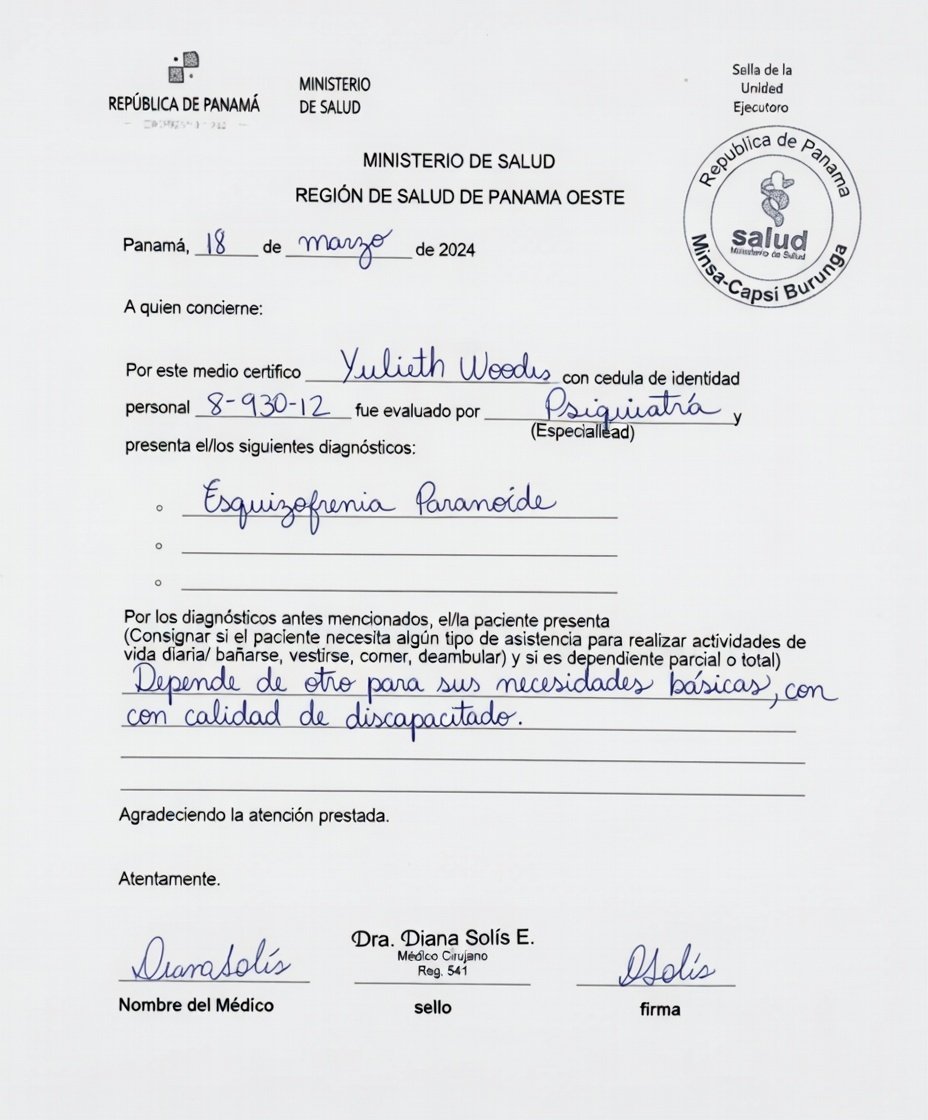 REPÚBLICA DE PANAMÁ
MINISTERIO
DE SALUD
Sella de la
Unided
Ejecutoro
Republica de Panama
salud
Ministerio de Salud
Minsa-Capsi Burunga
MINISTERIO DE SALUD
REGIÓN DE SALUD DE PANAMA OESTE
Panamá, 18 de marzo de 2024
A quien concierne:
Por este medio certifico Yulieth Woods con cedula de identidad
personal 8-930-12 fue evaluado por Psiquiatría y
(Especiallead)
presenta el/los siguientes diagnósticos:
Esquizofrenia Paranoíde
Por los diagnósticos antes mencionados, el/la paciente presenta
(Consignar si el paciente necesita algún tipo de asistencia para realizar actividades de
vida diaria/ bañarse, vestirse, comer, deambular) y si es dependiente parcial o total)
Depende de otro para sus necesidades básicas, con
con calidad de discapacitado.
Agradeciendo la atención prestada.
Atentamente.
Diana Solís
Dra. Diana Solís E.
Médico Cirujano
Reg. 541
DSolís
Nombre del Médico
sello
firma